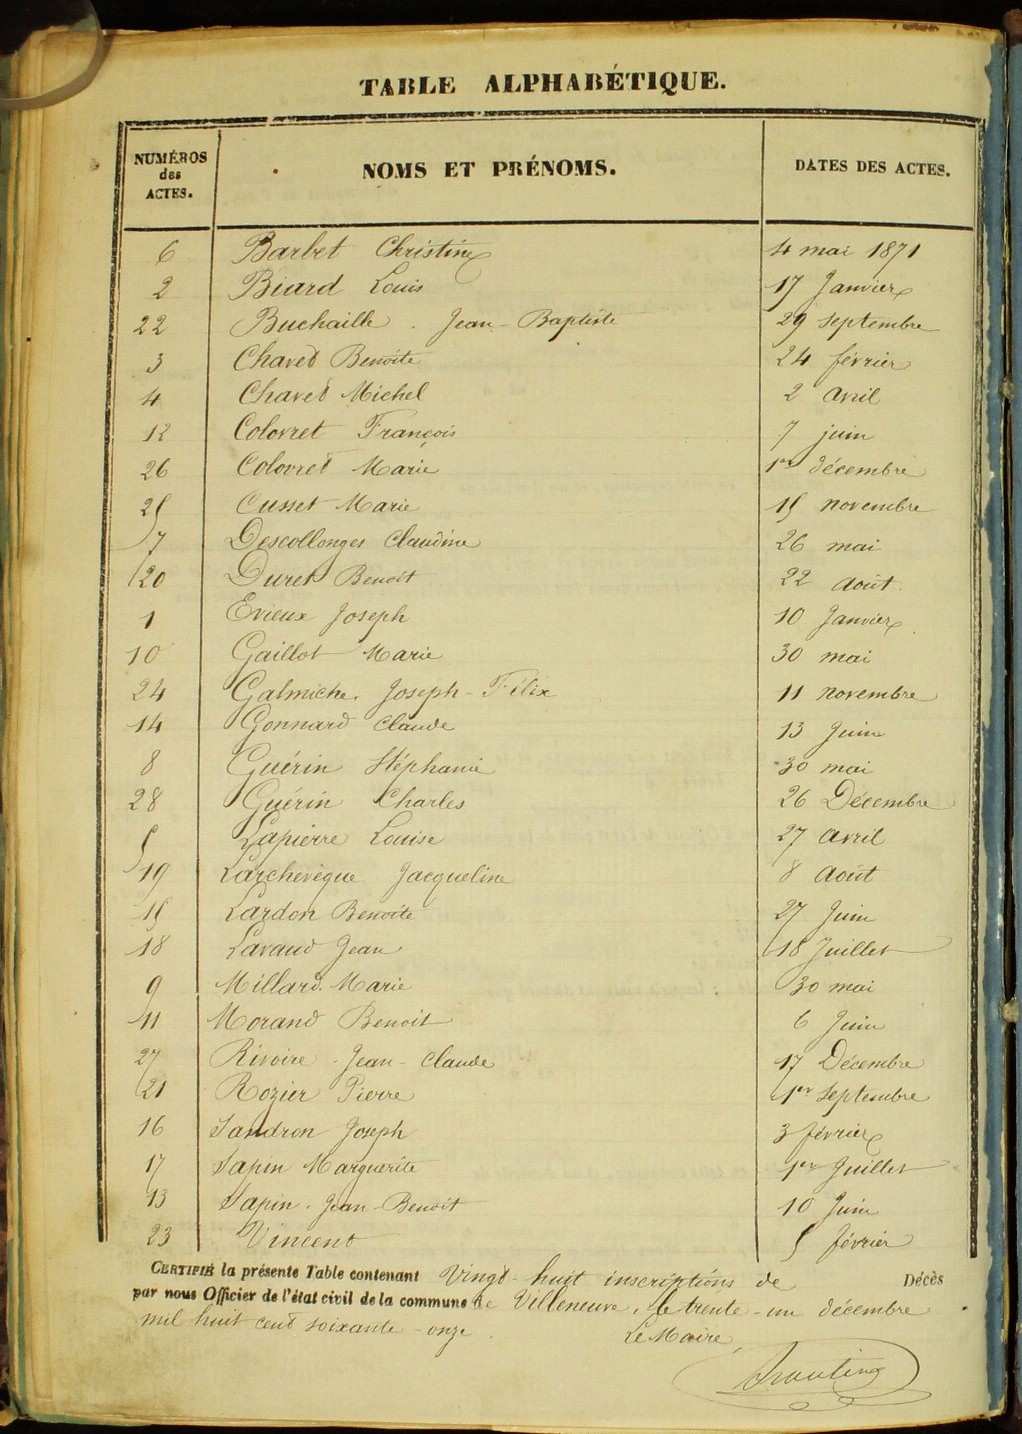 TABLE ALPHABÉTIQUE.
NUMÉROS des ACTES. NOMS ET PRÉNOMS. DATES DES ACTES.
6 Barbet Christine 4 mai 1871
2 Biard Louis 17 Janvier
22 Buchaille. Jean-Baptiste 29 septembre
3 Chavet Benoite 24 février
4 Chavet Michel 2 Avril
12 Colovret François 7 juin
26 Colovret Marie 1er décembre
25 Cusset Marie 15 novembre
7 Descollonges Claudine 26 mai
20 Duret Benoit 22 Août.
1 Evieux Joseph 10 Janvier
10 Gaillot Marie 30 mai
24 Galmiche. Joseph-Félix 11 novembre
14 Gonnard Claude 13 Juin
8 Guérin Stéphanie 30 mai
28 Guérin Charles 26 Décembre
5 Lapierre Louise 27 Avril
19 Larchevêque Jacqueline 8 Août
15 Lardon Benoite 27 Juin
18 Lavaud Jean 18 Juillet
9 Millard. Marie 30 mai
11 Morand Benoit 6 Juin
27 Rivoire - Jean-Claude 17 Décembre
21 Rozier Pierre 1er Septembre
16 Sandron Joseph 3 février
17 Sapin Marguerite 1er Juillet
13 Sapin. Jean-Benoit 10 Juin
23 Vincent 5 février
CERTIFIÉ la présente Table contenant Vingt-huit inscriptions de Décès
par nous Officier de l'état civil de la commune de Villeneuve, le trente-un décembre
mil huit cent soixante-onze.
Le Maire,